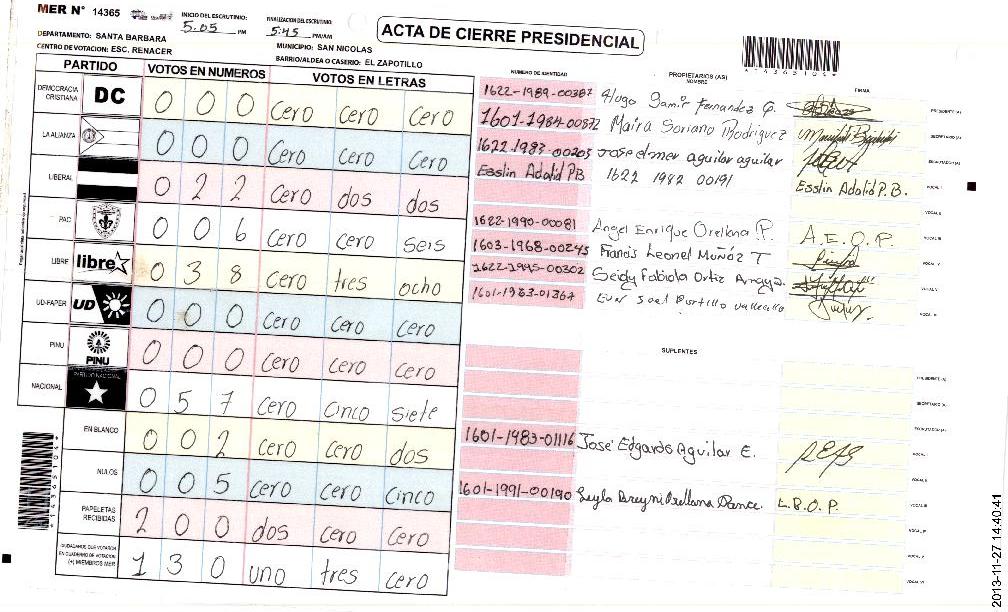 MER N° 14365
INICIO DEL ESCRUTINIO:
5.05 PM
FINALIZACION DEL ESCRUTINIO:
5:45 PM/AM
ACTA DE CIERRE PRESIDENCIAL
DEPARTAMENTO: SANTA BARBARA
MUNICIPIO: SAN NICOLAS
CENTRO DE VOTACION: ESC. RENACER
BARRIO/ALDEA O CASERIO: EL ZAPOTILLO
PARTIDO VOTOS EN NUMEROS VOTOS EN LETRAS
DEMOCRACIA CRISTIANA DC 0 0 0 cero cero cero
LA ALIANZA 0 0 0 cero cero cero
LIBERAL 0 2 2 cero dos dos
PAC 0 0 6 cero cero seis
LIBRE libre 0 3 8 cero tres ocho
UD-FAPER UD 0 0 0 cero cero cero
PINU PINU 0 0 0 cero cero cero
NACIONAL PARTIDO NACIONAL 0 5 7 cero cinco siete
EN BLANCO 0 0 2 cero cero dos
NULOS 0 0 5 cero cero cinco
PAPELETAS RECIBIDAS 2 0 0 dos cero cero
CIUDADANOS QUE VOTARON EN CUADERNO DE VOTACION (+) MIEMBROS MER 1 3 0 uno tres cero
NUMERO DE IDENTIDAD PROPIETARIOS (AS) NOMBRE FIRMA
1622-1989-00387 Hugo Samir Fernandez G. PRESIDENTE (A)
1601-1984-00872 Maira Soriano Rodriguez SECRETARIO (A)
1622-1983-00203 Jose elmer aguilar aguilar ESCRUTADOR (A)
Esslin Adolid P.B 1622 1982 00191 Esslin Adolid P.B. VOCAL I
VOCAL II
1622-1990-00081 Angel Enrique Orellana P. A.E.O.P. VOCAL III
1603-1968-00245 Francis Leonel Muñoz T VOCAL V
1622-1995-00302 Seidy Fabiola Ortiz
1601-1983-01367
SUPLENTES
PRESIDENTE (A)
SECRETARIO (A)
ESCRUTADOR (A)
1601-1983-01116 José Edgardo Aguilar E. VOCAL I
1601-1991-00190 L.B.O.P. VOCAL II
2013-11-27 14:40:41